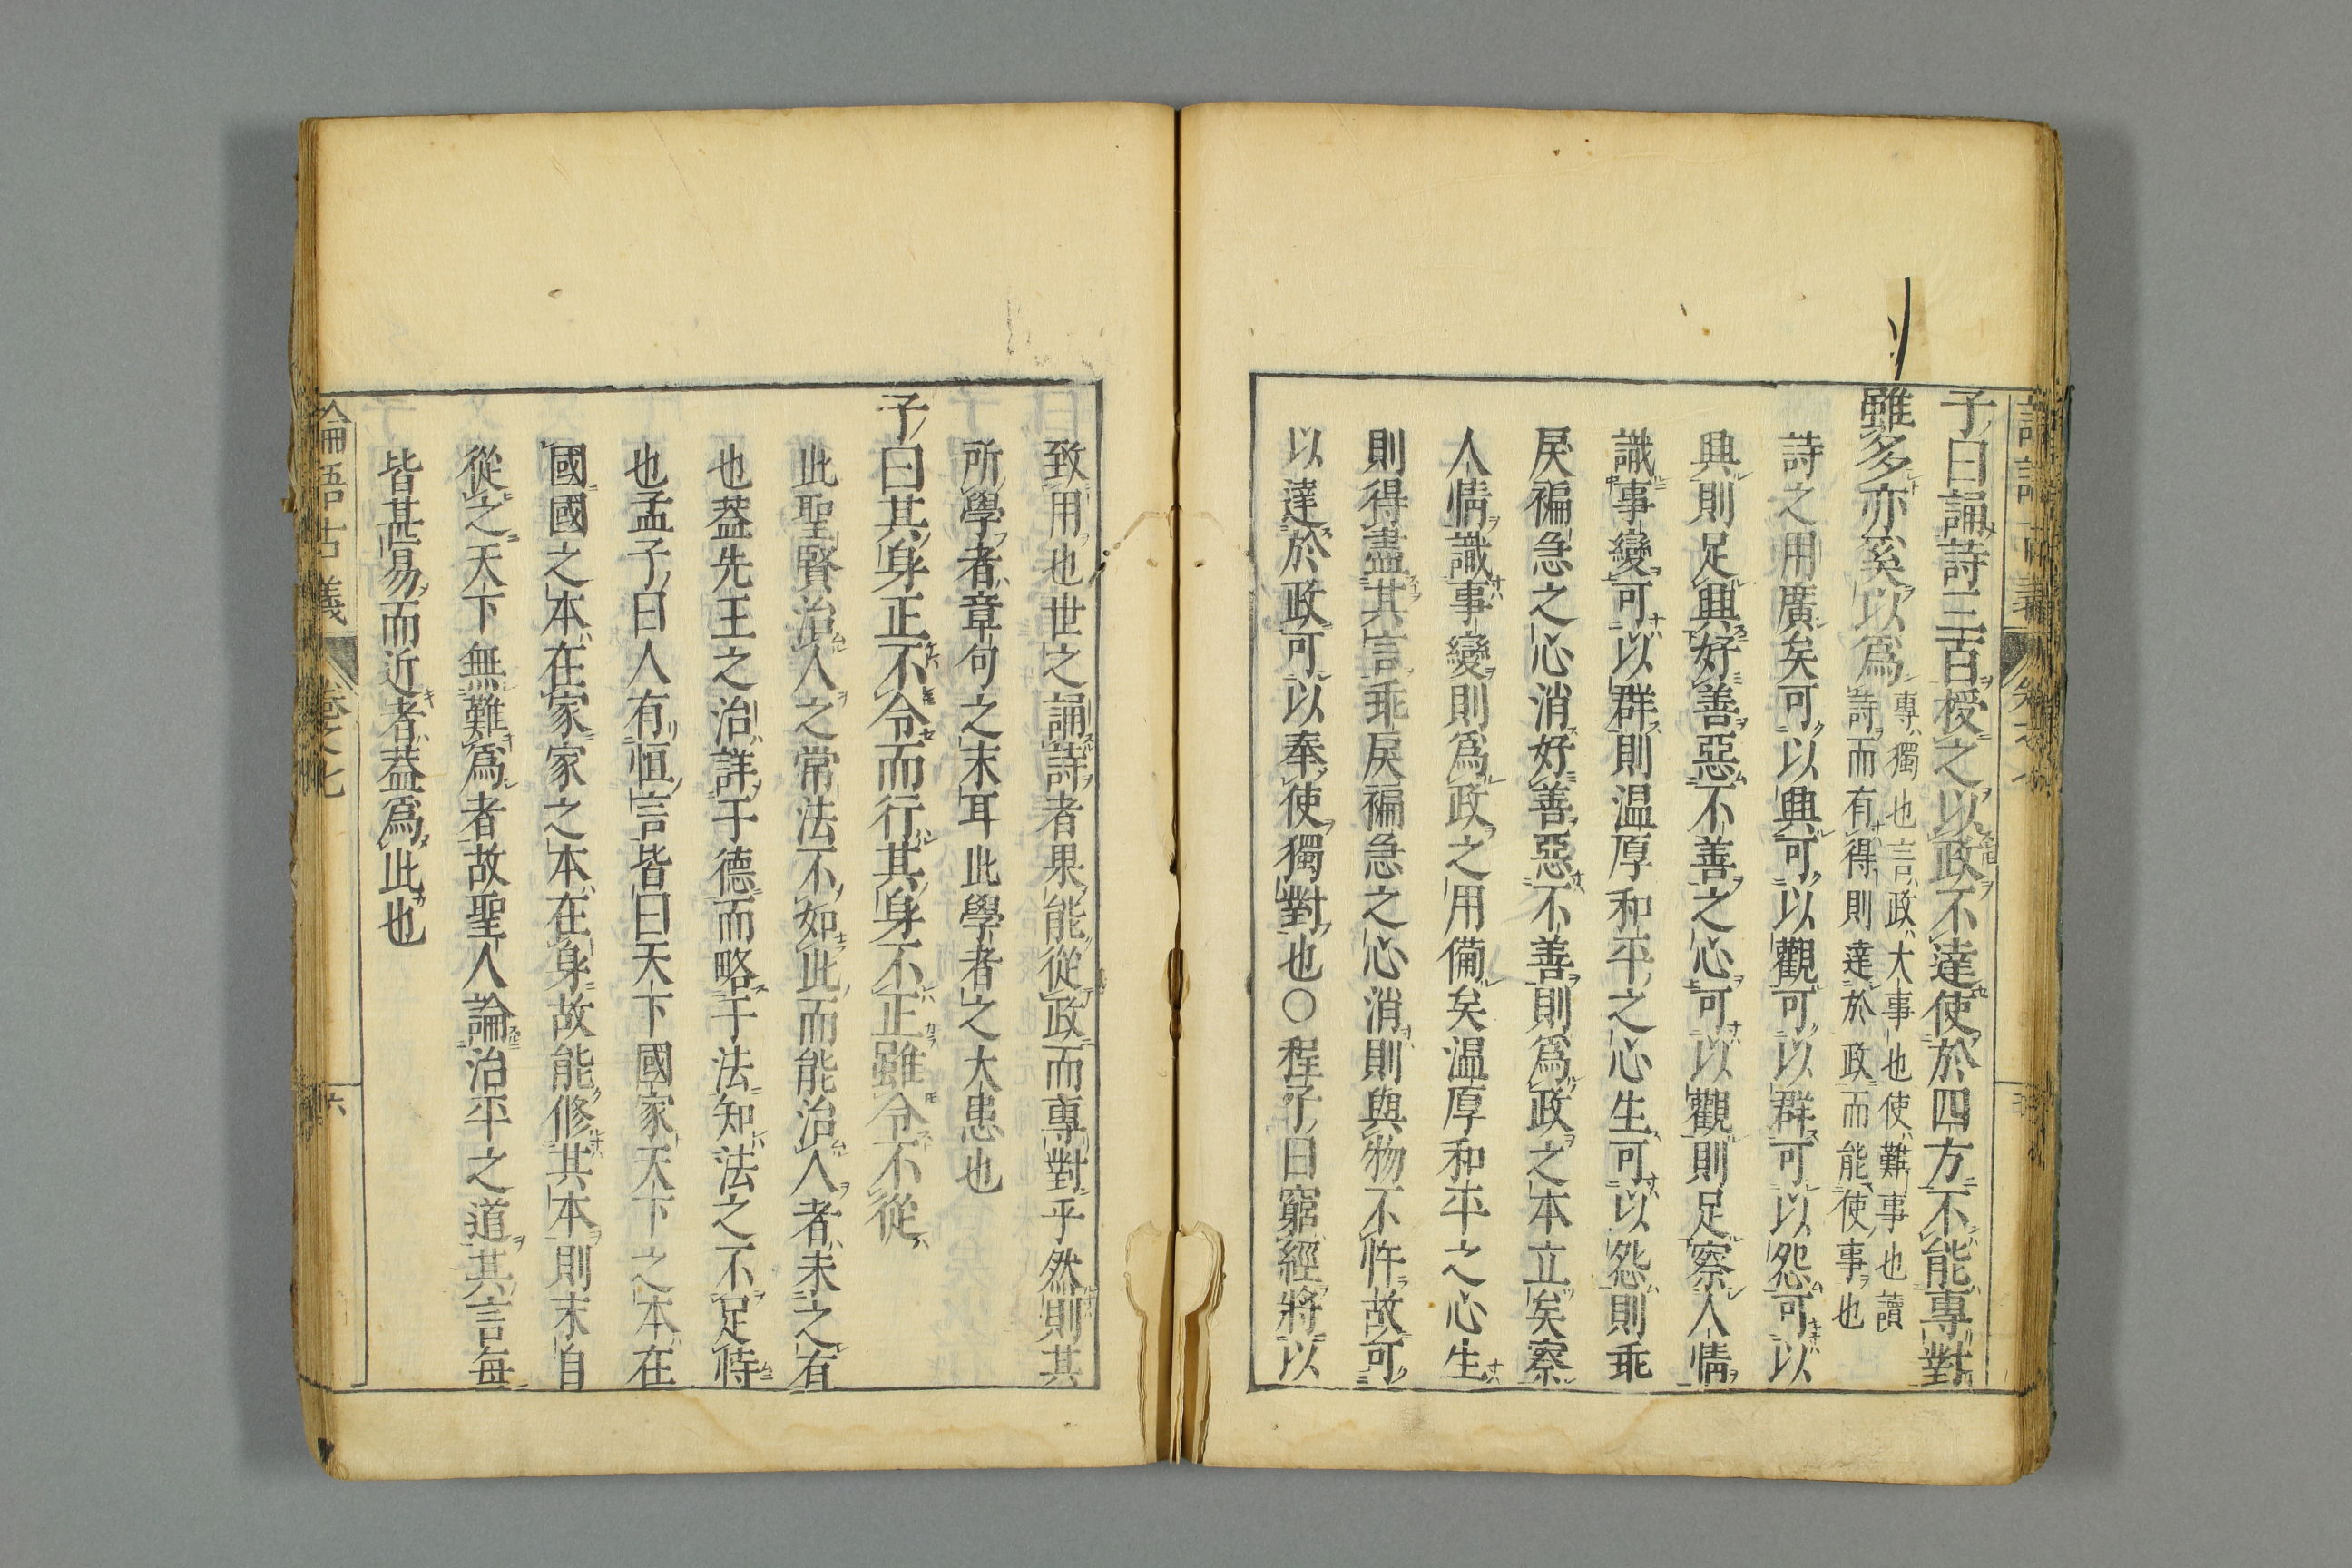 子曰誦詩三百授之以政不達使於四方不能專對
雖多亦奚以爲
專獨也言政大事也使難事也讀
詩而有得則達於政而能使事也
詩之用廣矣可以興可以觀可以群可以怨可以
興則足興好善惡不善之心可以觀則足察人情
識事變可以群則温厚和平之心生可以怨則乖
戾褊急之心消好善惡不善則爲政之本立矣察
人情識事變則爲政之用備矣温厚和平之心生
則得盡其言乖戾褊急之心消則與物不忤故可
以達於政可以奉使獨對也○程子曰窮經將以
致用也世之誦詩者果能從政而專對乎然則其
所學者章句之末耳此學者之大患也
子曰其身正不令而行其身不正雖令不從
此聖賢治人之常法不如此而能治人者未之有
也蓋先王之治詳于德而略于法知法之不足恃
也孟子曰人有恒言皆曰天下國家天下之本在
國國之本在家家之本在身故能修其本則末自
從之天下無難爲者故聖人論治平之道其言每
皆甚易而近者蓋爲此也
論語古義
卷之七
六